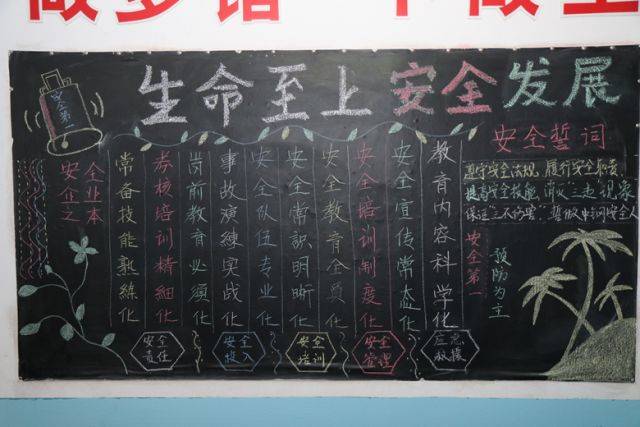 生命至上 安全发展
安全第一
安全
企业
之本
常备技能熟練化
考核培训精细化
岗前教育必须化
事故演練实战化
安全队伍专业化
安全常識明晰化
安全教育全员化
安全培训制度化
安全宣传常态化
教育内容科学化
安全誓词
遵守安全法规,履行安全职责,
提高安全技能,消灭三违现象
保证三不伤害,誓做 安全人
安全第一
预防为主
安全
责任
安全
投入
安全
培训
安全
管理
应急
救援